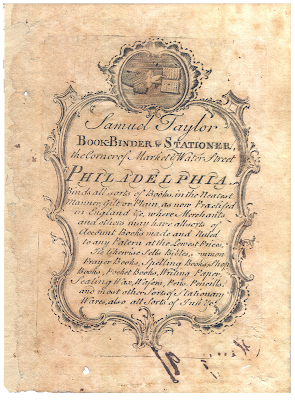 Samuel Taylor
BOOK-BINDER & STATIONER,
the Corner of Market & Water Street
PHILADELPHIA.
Binds all sorts of Books, in the Neatest
Manner, Gilt or Plain, as now Practised
in England &c. where Merchants
and others may have all sorts of
Account Books made and Ruled
to any Patern at the Lowest Prices,
He likewise Sells Bibles, Common
Prayer Books, Spelling Books, Shop
Books, Pocket Books, Writing Paper,
Sealing Wax, Wafers, Pens, Pencills,
and most other Sorts of Stationary
Wares, also all Sorts of Ink &c.